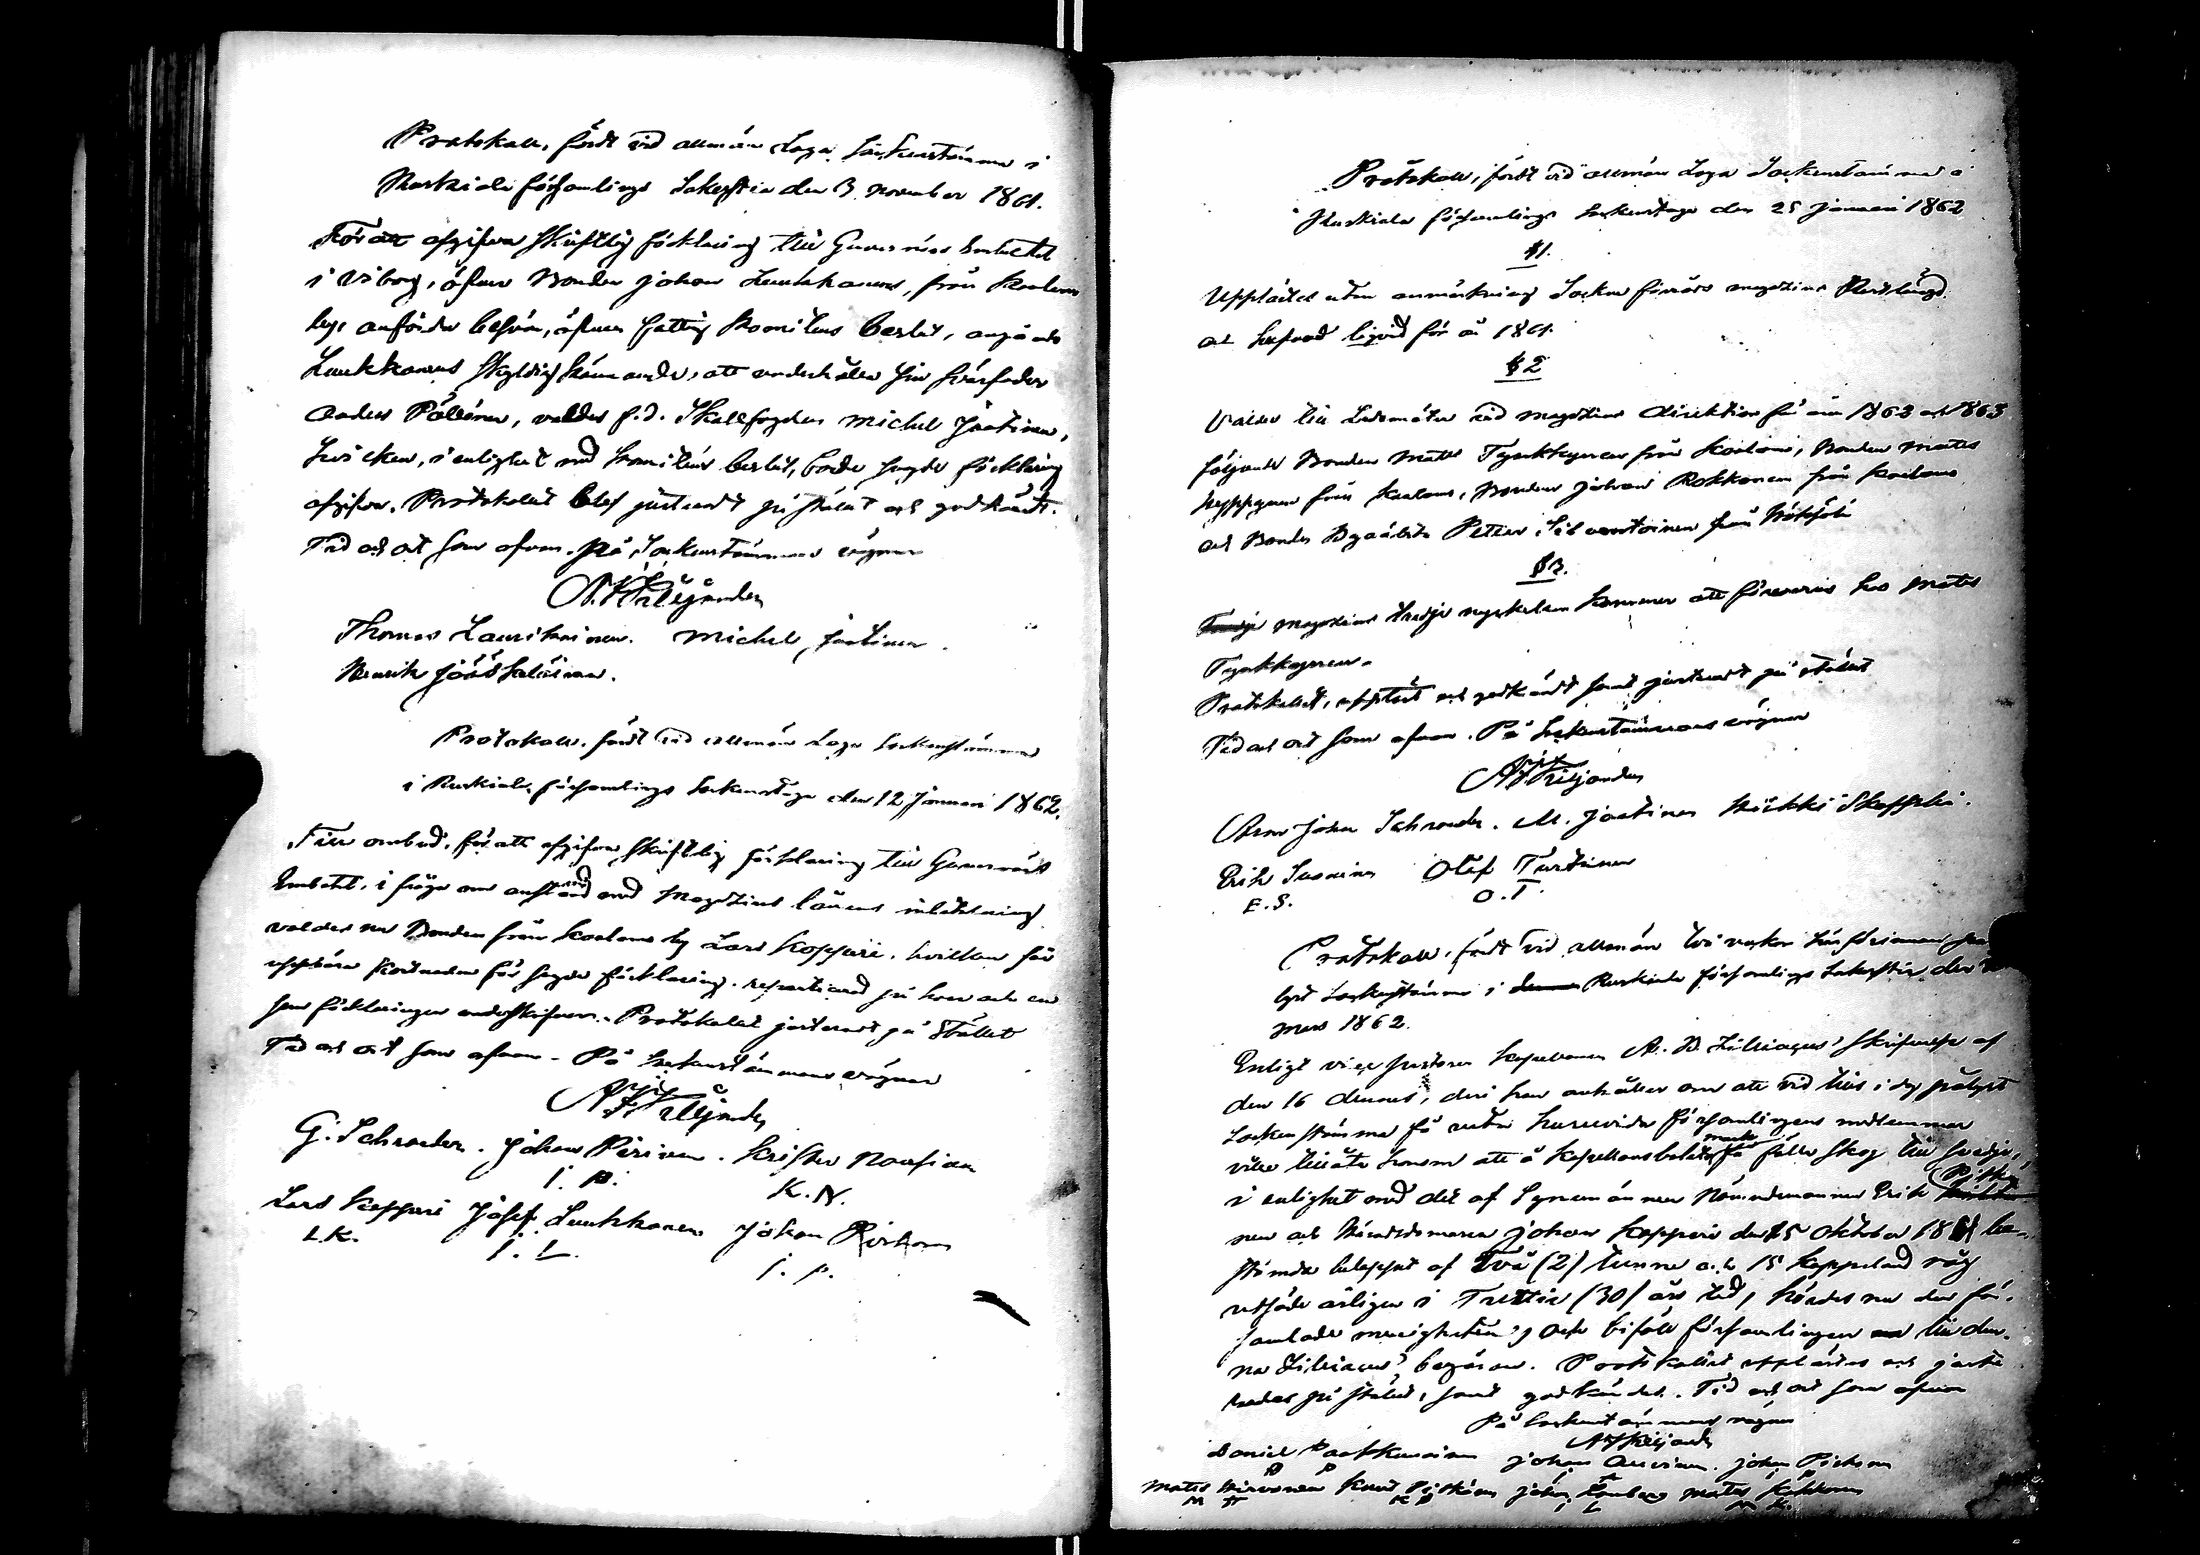 Protokoll, fördt vid allmän Laga Sockenstämma i
Ruskiala församlings Sakerstia den 3 November 1861.
För att afgifva skriftlig förklaring till Guvernörs Embetet
i Viborg, öfver Bonden Johan Luukkanens, från Kaalamo
by, anförde besvär, öfver fattig Komitens beslut, angående
Luukkanens skyldigkännande, att underhålla sin svärfader
Anders Pöllönen, valdes f.d. Skallfogden Michel Jaatinen,
hvilken, i enlighet med Komiténs beslut, borde sagde förklaring
afgifva. Protokollet blef justeradt på stället och godkändt.
Tid och ort som ofvan. På Sockenstämmans vägnar
Thomas Laurikainen. Michel Jaatinen
Henrik Jääskeläinen.
Protokoll, fördt vid allmän Laga Sockenstämma
i Ruskiala församlings Sockenstuga den 12 Januari 1862.
Till ombud, för att afgifva skriftlig förklaring till Guvernörs
Embetet, i fråga om anstånd med Magazins lånens inbetalning
valdes nu Bonden från Kaalamo by Lars Koppari, hvilken får
uppbära kostnaden för sagde förklaring, reparterad på hvar och en
som förklaringen underskrifver. Protokollet justeradt på stället
Tid och ort som ofvan - På Sockenstämmans vägnar
G. Schroeder. Johan Pirinen. Krister Nousiain
I. P. K. N.
Lars Koppari Josef Luukkonen Johan Pirhonen
L.K. I. L. I. P.
Protokoll, fördt vid allmän Laga Sockenstämma i
Ruskiala församlings Sockenstuga den 25 Januari 1862
§1.
Upplästes utan anmärkning Socken förråds magazins Restlängd
och liqvid för år 1861.
§2
Valdes till Ledamöter vid magazins direktion för åren 1862 och 1863
följande Bonden Matts Tynkkynen från Kaalamo, Bonden Matts
från Kaalamo, Bonden Johan Rokkanen från Kaalamo
och Bonden Petter Silventoinen från
§3.
magazins tredje nyckeln kommer att förvaras hos Matts
Tynkkynen.
Protokollet, uppläst och godkändt samt justeradt på stället
Tid och ort som ofvan. På Sockenstämmans vägnar
Johan Schroeder. M. Jaatinen Heikki
Erik Susoinen Olof Turtinen
E.S. O.T.
Protokoll, fördt vid allmän två veckor härförinnan
lyst Sockenstämma i Ruskiala församlings Sakerstia den
Mars 1862.
Enligt vice pastoren kapellanen A. B. Liliacqus' skrifvelse af
den 16 dennes, deri han anhåller om att vid till i dag pålyst
Sockenstämma få veta huruvida församlingens medlemmar
ville tillåta honom att å Kapellansbolets mark få fälla skog till svedje,
i enlighet med det af Synemännen Nämndemannen Erik Pitkä
nen och Häradsdomaren Johan Koppari den 15 Oktober 1861 be-
stämda beloppet af Två (2) tunne och 15 kappeland råg
utsäde årligen i Trettie (30) års tid, hördes nu den för-
samlade menigheten; och biföll församlingen till den-
na Liliacqus' begäran. Protokollet upplästes och juste-
rades på stället, samt godkändes. Tid och ort som ofvan
På Sockenstämmans vägnar
Daniel Paakkunainen Johan Auvinen. Johan Pirhonen
Matts Hirvonen Knut Pitkänen Johan Matts Kokkonen
M H K P I L M K.